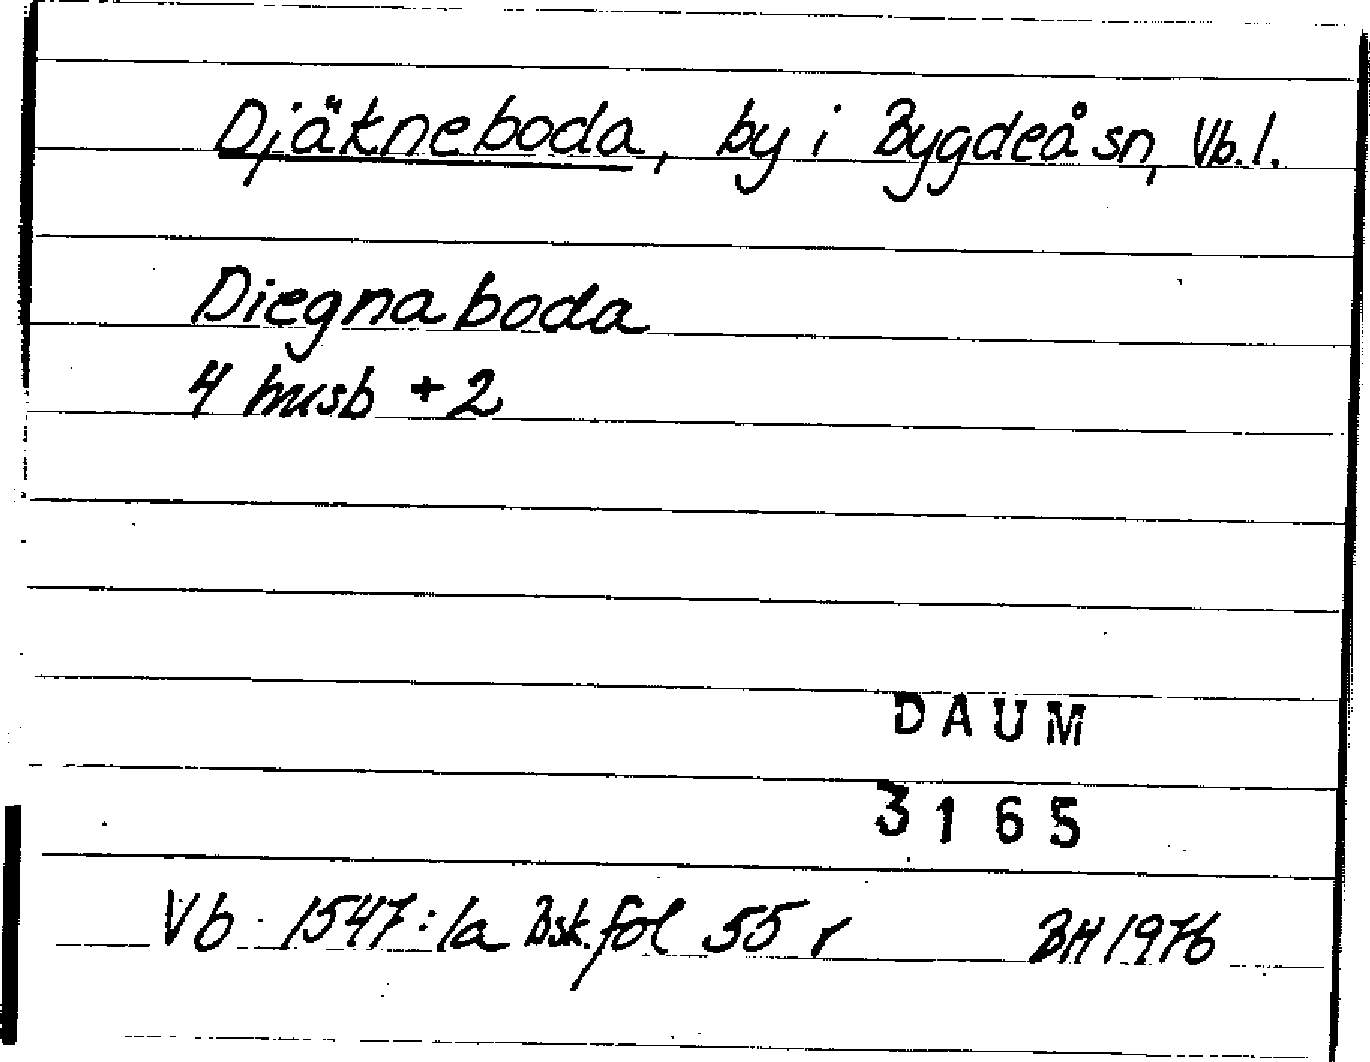 Djäkneboda, by i Bygdeå sn, Vb. l.
Diegnaboda
4 husb + 2
DAUM
3165
Vb 1547:1a Bsk. fol 55 r BH 1976